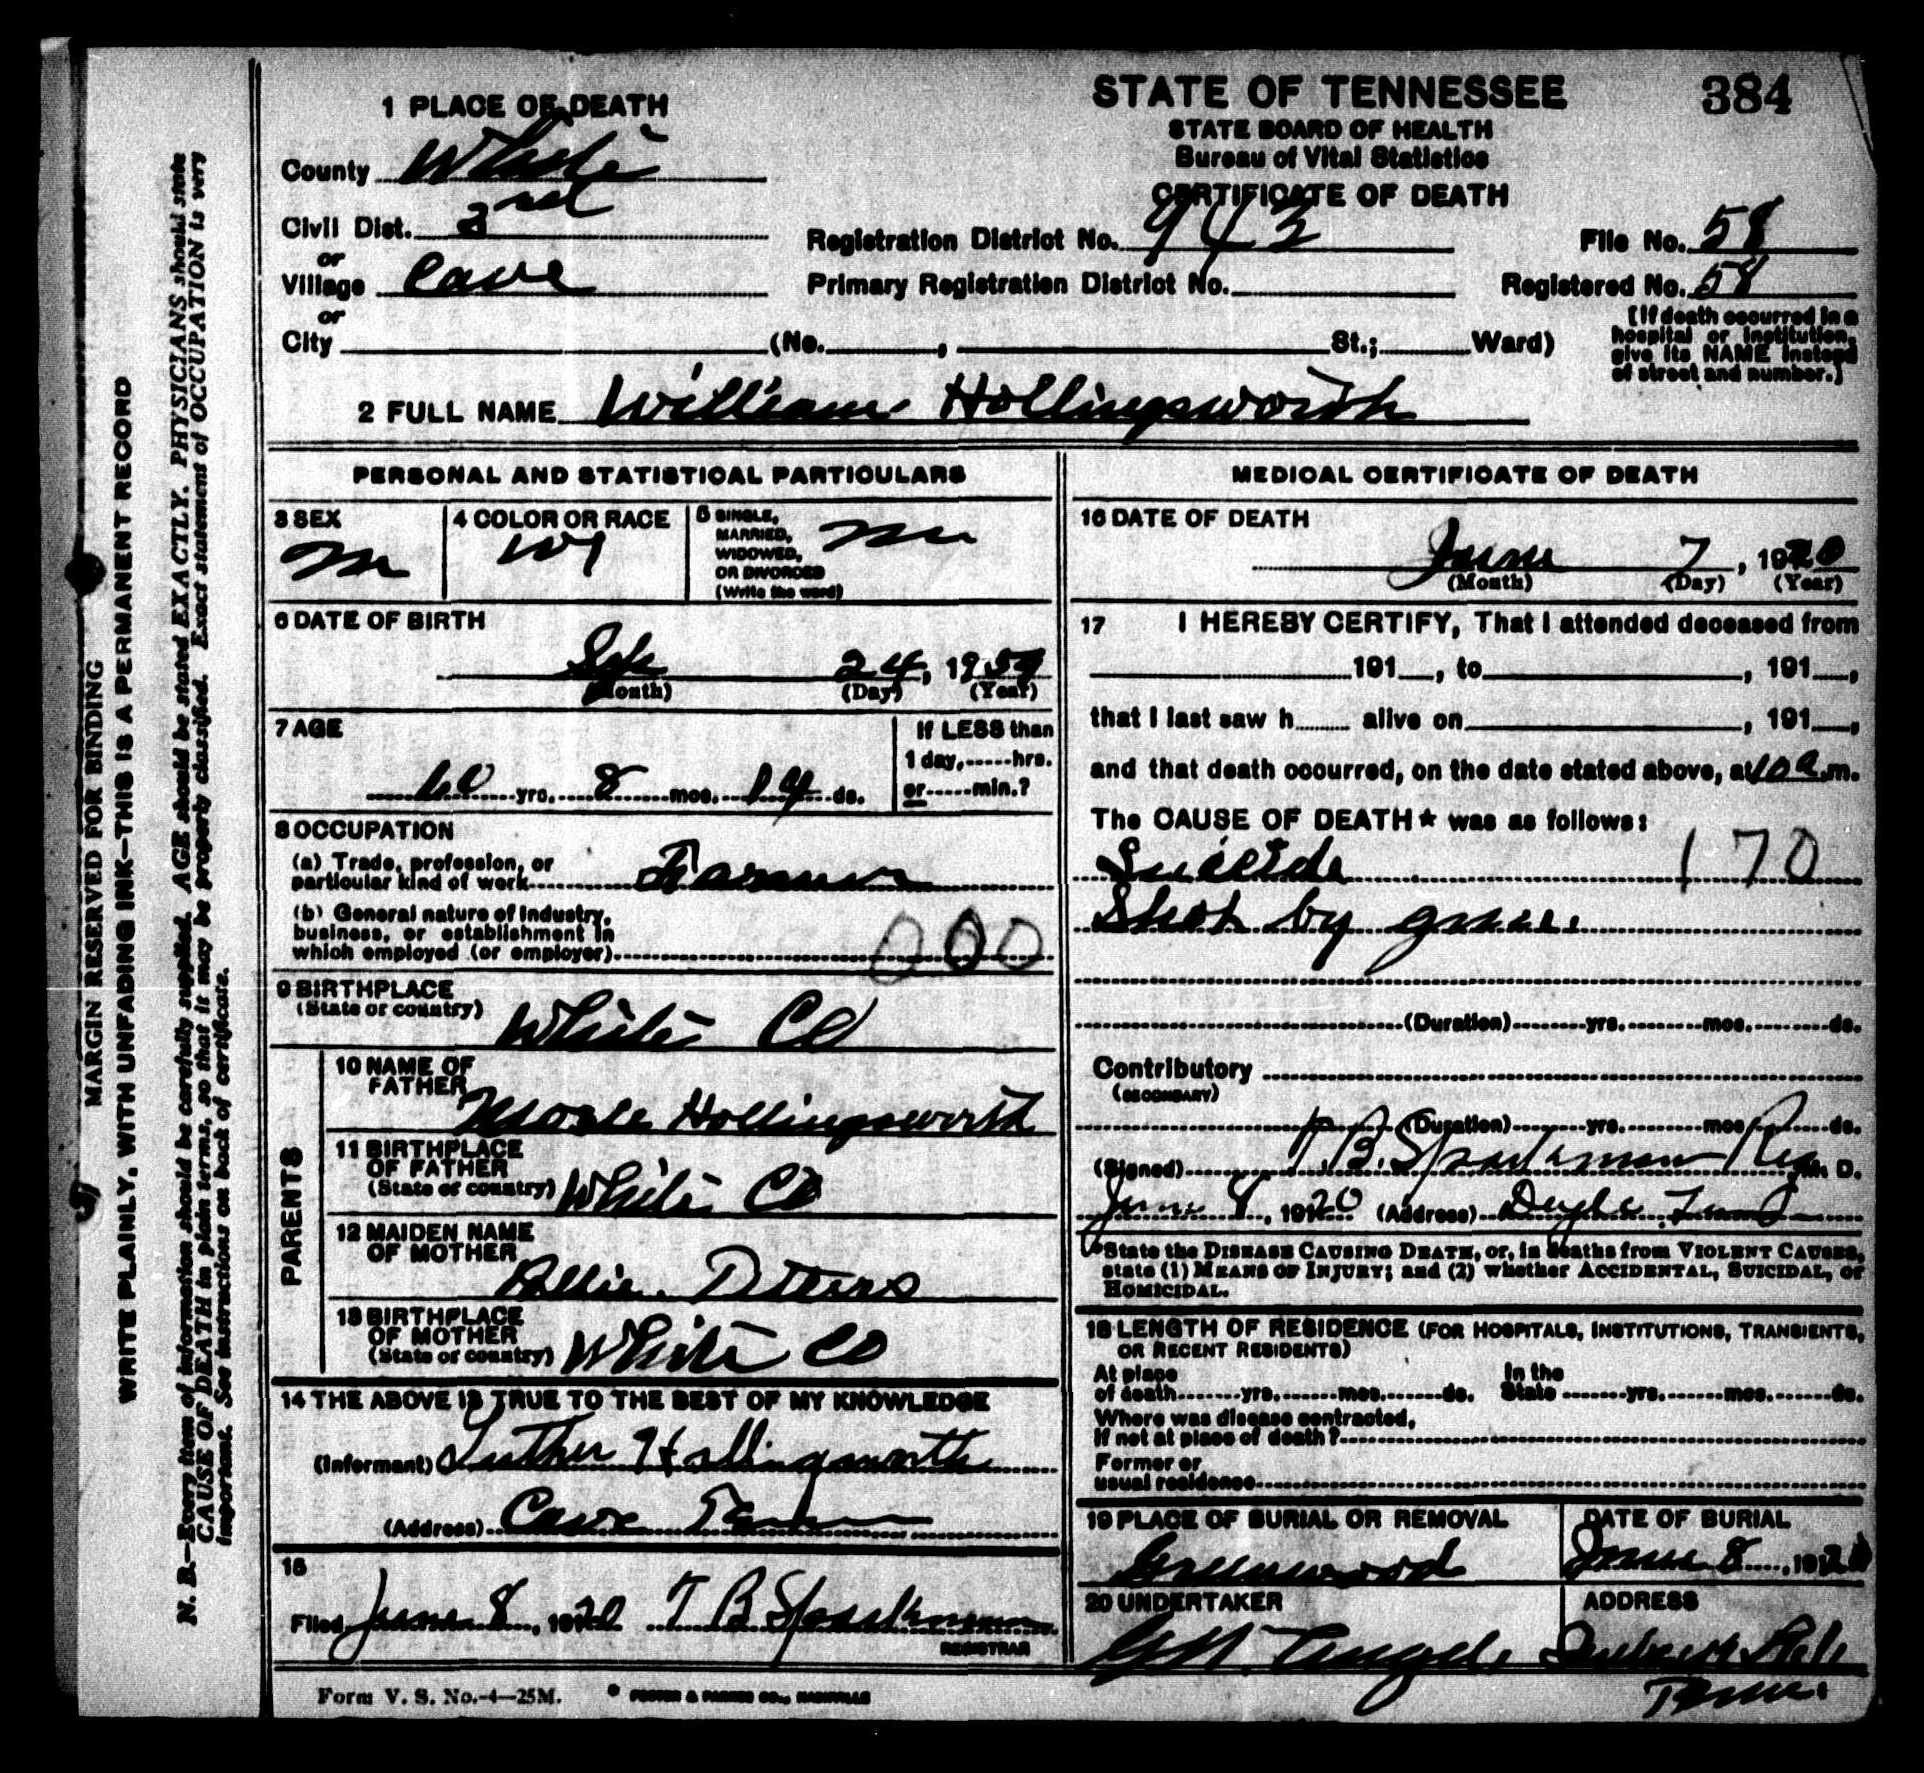 384
STATE OF TENNESSEE
STATE BOARD OF HEALTH
Bureau of Vital Statistics
CERTIFICATE OF DEATH
1 PLACE OF DEATH
County White
Civil Dist. 3rd
or
Village Cave
or
City (No. , St.; Ward)
Registration District No. 943
File No. 58
Primary Registration District No.
Registered No. 58
[If death occurred in a
hospital or institution,
give its NAME instead
of street and number.]
2 FULL NAME William Hollingsworth
PERSONAL AND STATISTICAL PARTICULARS
3 SEX
M
4 COLOR OR RACE
W
5 SINGLE,
MARRIED,
WIDOWED,
OR DIVORCED
(Write the word)
M
6 DATE OF BIRTH
Sep 24, 1859
(Month) (Day) (Year)
7 AGE
60 yrs. 8 mos. 14 ds.
If LESS than
1 day, hrs.
or min.?
8 OCCUPATION
(a) Trade, profession, or
particular kind of work Farmer
(b) General nature of Industry,
business, or establishment in
which employed (or employer) 000
9 BIRTHPLACE
(State or country) White Co
PARENTS
10 NAME OF
FATHER
Hollingsworth
11 BIRTHPLACE
OF FATHER
(State or country) White Co
12 MAIDEN NAME
OF MOTHER
13 BIRTHPLACE
OF MOTHER
(State or country) White Co
14 THE ABOVE IS TRUE TO THE BEST OF MY KNOWLEDGE
(Informant) Luther Hollingsworth
(Address) Cave Tenn
15
Filed June 8, 1920 T B Sparkman
REGISTRAR
MEDICAL CERTIFICATE OF DEATH
16 DATE OF DEATH
June 7, 1920
(Month) (Day) (Year)
17 I HEREBY CERTIFY, That I attended deceased from
191 , to , 191 ,
that I last saw h alive on , 191 ,
and that death occurred, on the date stated above, at 10 a. m.
The CAUSE OF DEATH* was as follows:
Suicide 170
Shot by gun.
(Duration) yrs. mos. ds.
Contributory
(SECONDARY)
(Duration) yrs. mos. ds.
(Signed) T. B. Sparkman Reg M. D.
June 8, 1920 (Address) Doyle Tenn
*State the DISEASE CAUSING DEATH, or, in deaths from VIOLENT CAUSES,
state (1) MEANS OF INJURY; and (2) whether ACCIDENTAL, SUICIDAL, or
HOMICIDAL.
18 LENGTH OF RESIDENCE (FOR HOSPITALS, INSTITUTIONS, TRANSIENTS,
OR RECENT RESIDENTS)
At place
of death yrs. mos. ds.
In the
State yrs. mos. ds.
Where was disease contracted,
if not at place of death?
Former or
usual residence
19 PLACE OF BURIAL OR REMOVAL
Greenwood
DATE OF BURIAL
June 8, 1920
20 UNDERTAKER
ADDRESS
Tenn.
Form V. S. No.-4—25M.
FOSTER & PARKES CO., NASHVILLE
MARGIN RESERVED FOR BINDING
WRITE PLAINLY, WITH UNFADING INK—THIS IS A PERMANENT RECORD
N. B.—Every item of information should be carefully supplied. AGE should be stated EXACTLY. PHYSICIANS should state
CAUSE OF DEATH in plain terms, so that it may be properly classified. Exact statement of OCCUPATION is very
important. See instructions on back of certificate.